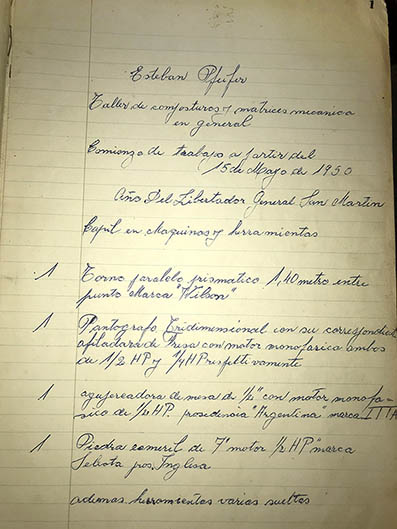 1
Esteban Pfeifer
Taller de composturas y matrices mecanica
en general
Comienzo de trabajo a partir del
15 de Mayo de 1950
Año Del Libertador General San Martin
Capil en Maquinas y herramientas
1 Torno paralelo prismatico 1,40 metro entre
punto Marca "Wilson"
1 Pantografo Tridimensional con su correspondiente
afiladora de mesa con motor monofasica ambos
de 1/2 HP y 1/4 HP respetivamente
1 agujereadora de mesa de 1/2" con motor monofa-
sico de 1/2 HP. prosedencia "Argentina" marca
1 Piedra esmeril de 7" motor 1/2 HP "marca
pos, Inglesa
ademas herramientas varias sueltas